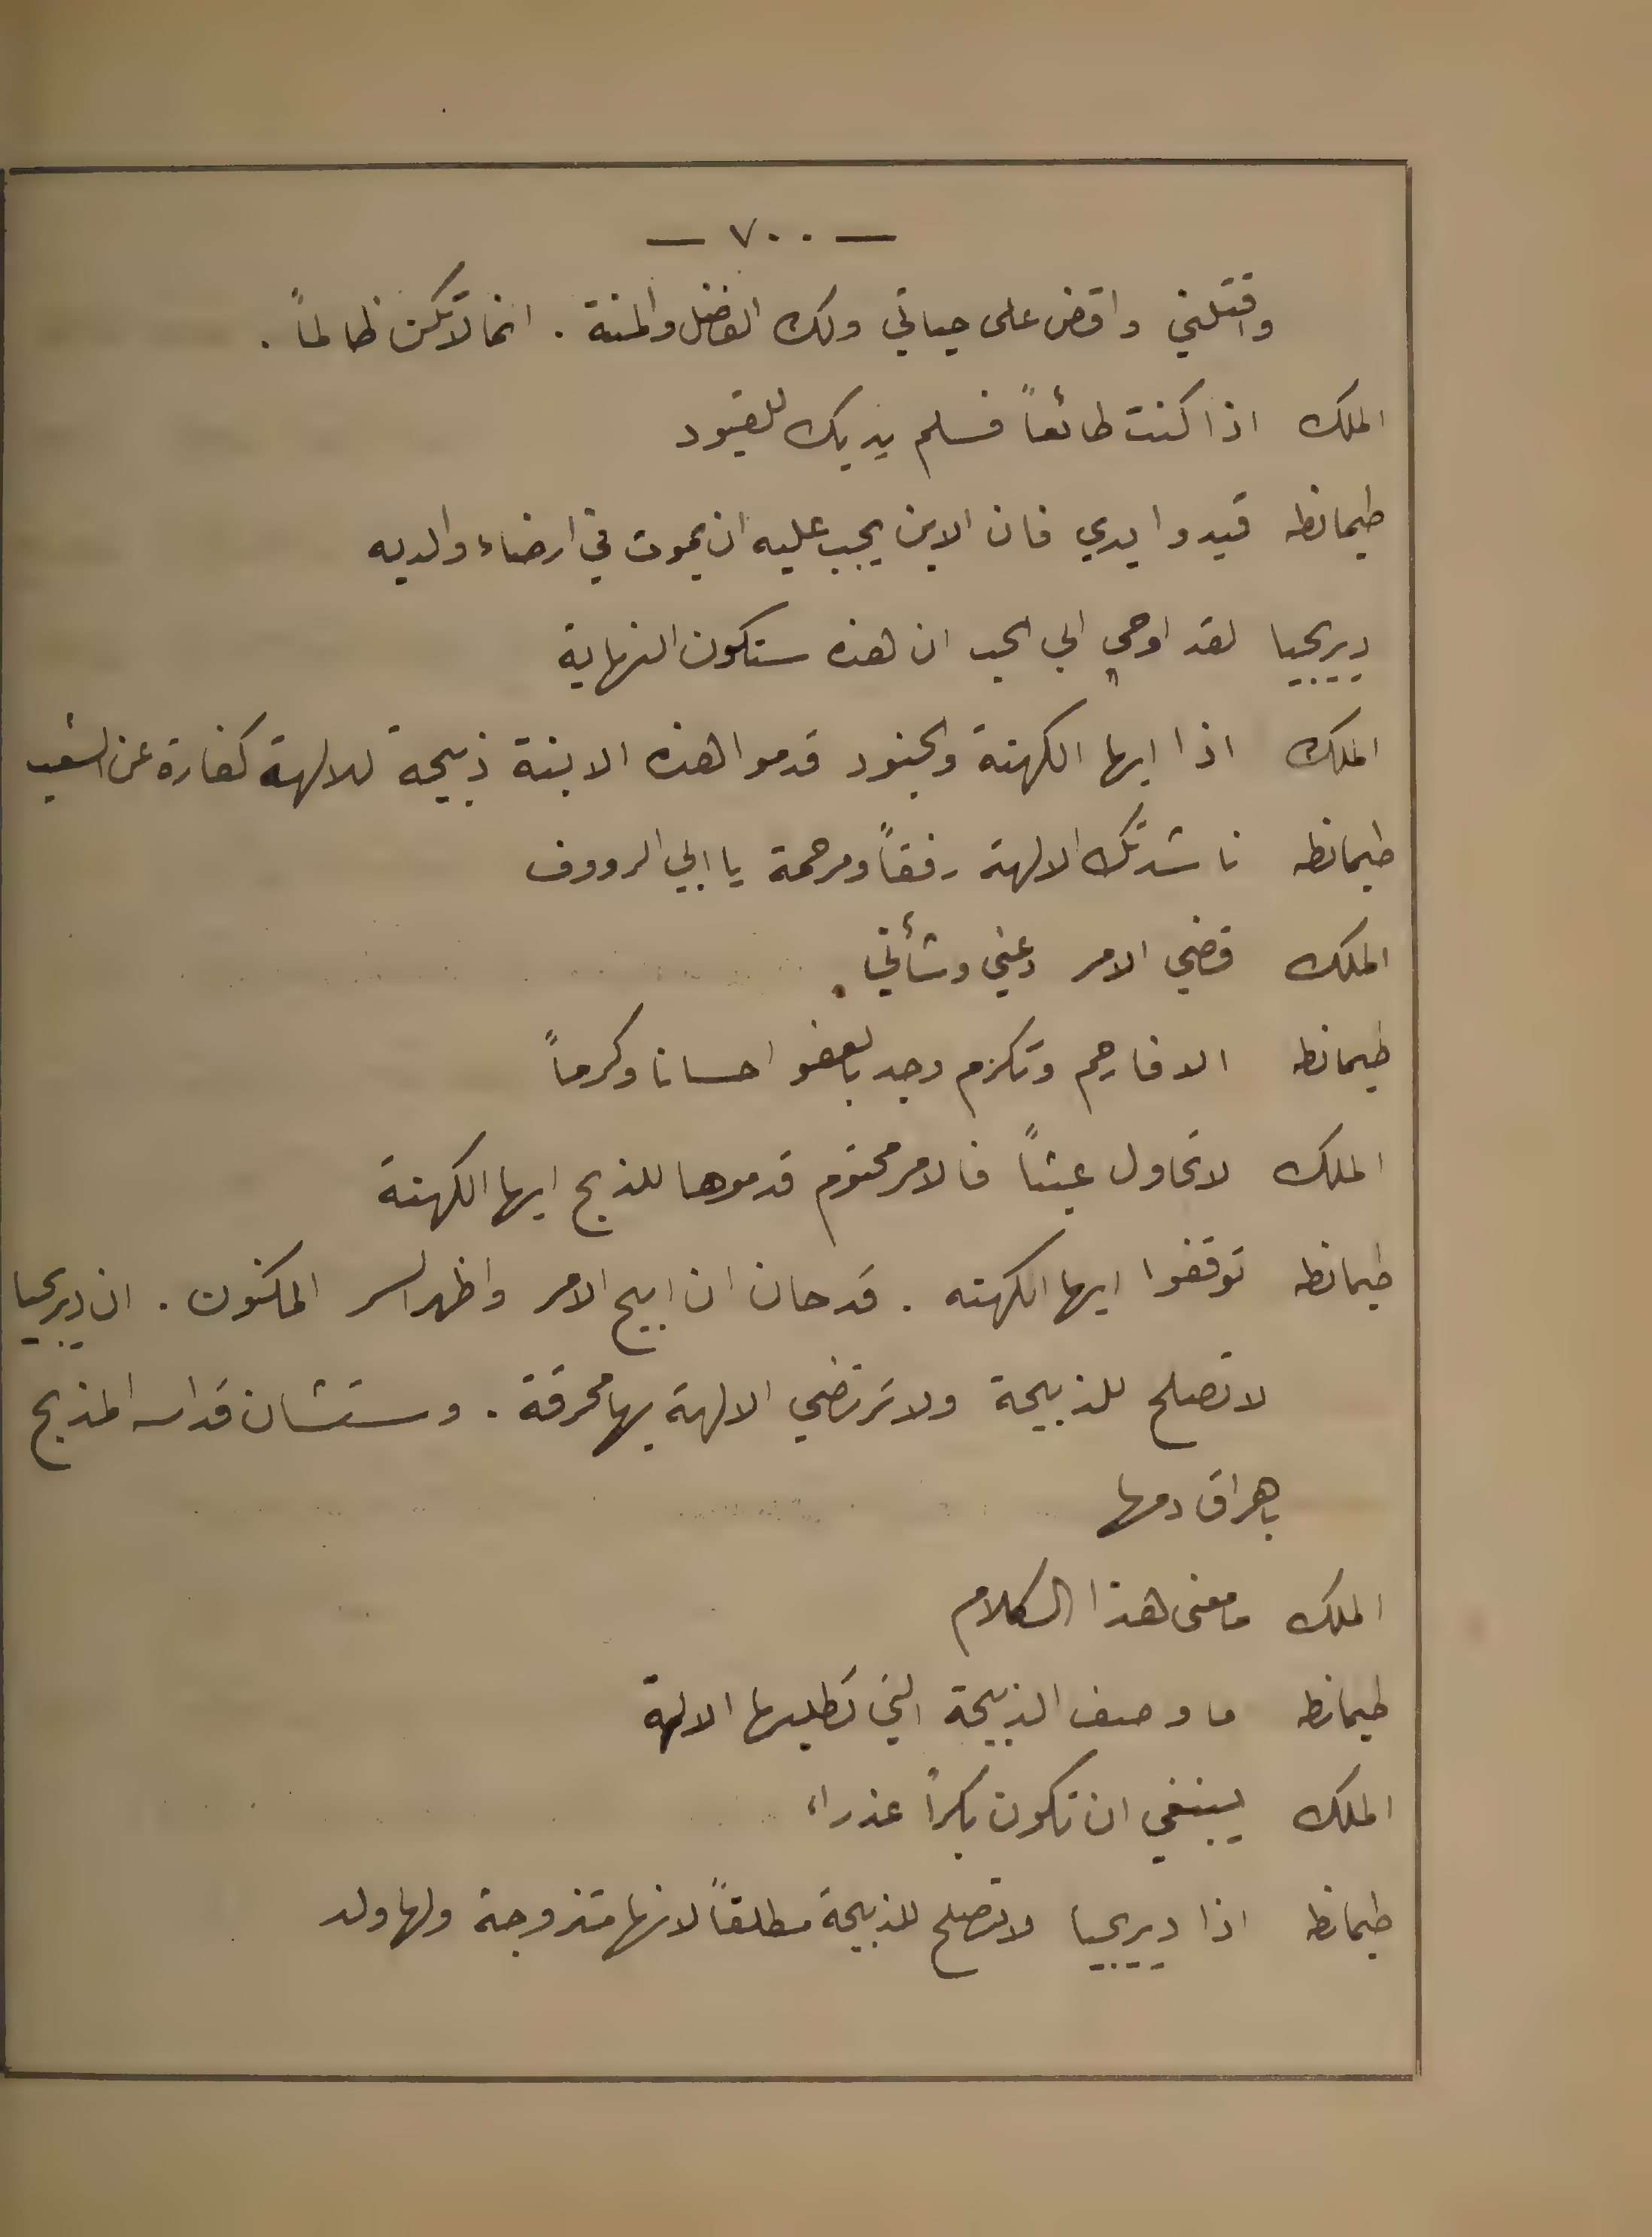 — ٧٠٠ —
واقتلني واقض على حياتي ولك الفضل والمنة . انما لا تكن ظالماً .
الملك اذا كنت طائعاً فسلم يديك للقيود
طيمانطه قيدوا يدي فان الابن يجب عليه ان يموت في ارضاء والديه
ديريحيا لقد اوحي الي الحب ان هذه ستكون النهاية
الملك اذا ايها الكهنة والجنود قدموا هذه الابنة ذبيحة للالهة كفارة عن الشعب
طيمانطه ناشدتك الالهة رفقاً ومرحمة يا ابي الرووف
الملك قضي الامر دعني وشأني
طيمانطه الا فارحم وتكرم وجد بالعفو احسانا وكرماً
الملك لا تحاول عبثاً فالامر محتوم قدموها للذبح ايها الكهنة
طيمانطه توقفوا ايها الكهنه . قد حان ان ابيح الامر واظهر السر المكنون . ان ديريحيا
لا تصلح للذبيحة ولا ترتضي الالهة بها محرقة . وستشان قداسه المذبح
باهراق دمها
الملك ما معنى هذا الكلام
طيمانطه ما وصف الذبيحة التي تطلبها الالهة
الملك ينبغي ان تكون بكراً عذراء
طيمانطه اذا ديريحيا لا تصلح للذبيحة مطلقاً لانها متزوجة ولها ولد